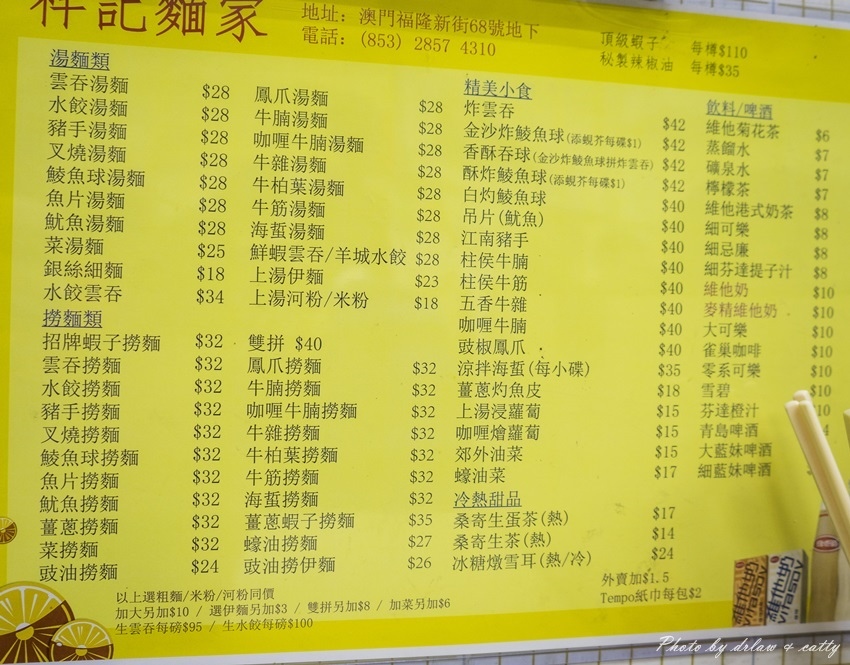 祥記麵家
地址：澳門福隆新街68號地下
電話：(853) 2857 4310
頂級蝦子 每樽$110
秘製辣椒油 每樽$35
湯麵類
雲吞湯麵 $28
水餃湯麵 $28
豬手湯麵 $28
叉燒湯麵 $28
鯪魚球湯麵 $28
魚片湯麵 $28
魷魚湯麵 $28
菜湯麵 $25
銀絲細麵 $18
水餃雲吞 $34
鳳爪湯麵 $28
牛腩湯麵 $28
咖喱牛腩湯麵 $28
牛雜湯麵 $28
牛柏葉湯麵 $28
牛筋湯麵 $28
海蜇湯麵 $28
鮮蝦雲吞/羊城水餃 $28
上湯伊麵 $23
上湯河粉/米粉 $18
撈麵類
招牌蝦子撈麵 $32
雲吞撈麵 $32
水餃撈麵 $32
豬手撈麵 $32
叉燒撈麵 $32
鯪魚球撈麵 $32
魚片撈麵 $32
魷魚撈麵 $32
薑蔥撈麵 $32
菜撈麵 $32
豉油撈麵 $24
雙拼 $40
鳳爪撈麵 $32
牛腩撈麵 $32
咖喱牛腩撈麵 $32
牛雜撈麵 $32
牛柏葉撈麵 $32
牛筋撈麵 $32
海蜇撈麵 $32
薑蔥蝦子撈麵 $35
蠔油撈麵 $27
豉油撈伊麵 $26
精美小食
炸雲吞 $42
金沙炸鯪魚球(添蜆芥每碟$1) $42
香酥吞球(金沙炸鯪魚球拼炸雲吞) $42
酥炸鯪魚球(添蜆芥每碟$1) $42
白灼鯪魚球 $40
吊片(魷魚) $40
江南豬手 $40
柱侯牛腩 $40
柱侯牛筋 $40
五香牛雜 $40
咖喱牛腩 $40
豉椒鳳爪 $40
涼拌海蜇(每小碟) $35
薑蔥灼魚皮 $18
上湯浸蘿蔔 $15
咖喱燴蘿蔔 $15
郊外油菜 $15
蠔油菜 $17
冷熱甜品
桑寄生蛋茶(熱) $17
桑寄生茶(熱) $14
冰糖燉雪耳(熱/冷) $24
飲料/啤酒
維他菊花茶 $6
蒸餾水 $7
礦泉水 $7
檸檬茶 $7
維他港式奶茶 $8
細可樂 $8
細忌廉 $8
細芬達提子汁 $8
維他奶 $10
麥精維他奶 $10
大可樂 $10
雀巢咖啡 $10
零系可樂 $10
雪碧 $10
芬達橙汁 10
青島啤酒 4
大藍妹啤酒
細藍妹啤酒
外賣加$1.5
Tempo紙巾每包$2
以上選粗麵/米粉/河粉同價
加大另加$10 / 選伊麵另加$3 / 雙拼另加$8 / 加菜另加$6
生雲吞每磅$95 / 生水餃每磅$100
維他奶
VITASOY
Photo by drlaw & catty